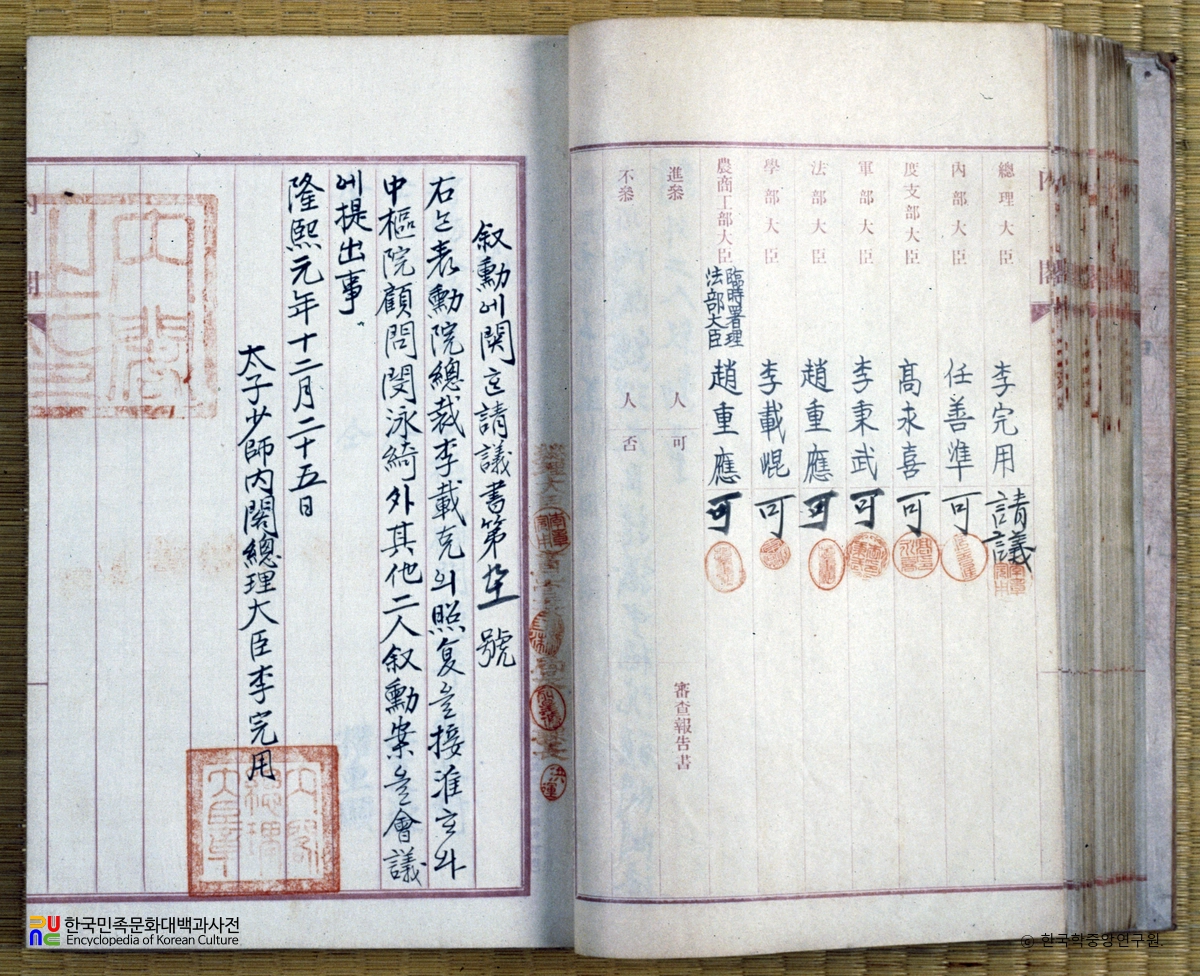 總理大臣 李完用 請議
內部大臣 任善準 可
度支部大臣 高永喜 可
軍部大臣 李秉武 可
法部大臣 趙重應 可
學部大臣 李載崐 可
農商工部大臣 臨時署理法部大臣 趙重應 可
進叅 人 可
審査報告書
不叅 人 否
叙勳에関한請議書第 號
右と表勳院總裁李載克의照复을接准하와
中樞院顧問閔泳綺外其他二人叙勳案을會議
에提出事
隆熙元年十二月二十五日
太子少師內閣總理大臣李完用
한국민족문화대백과사전
Encyclopedia of Korean Culture
ⓒ 한국학중앙연구원